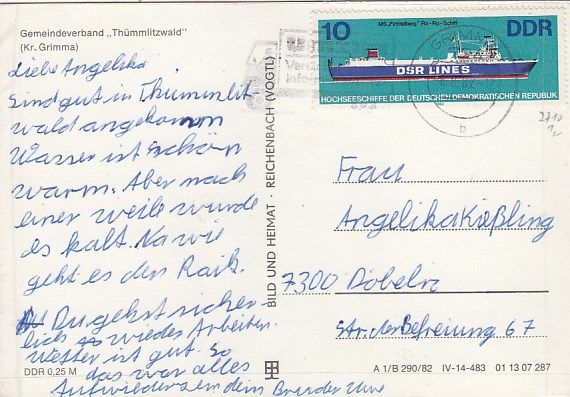 Gemeindeverband „Thümmlitzwald"
(Kr. Grimma)
Liebe Angelika
Sind gut in Thümmlit-
wald angekomm
Wasser ist schön
warm. Aber nach
einer weile wurde
es kalt. Na wie
geht es den Raik.
Du gehst sicher-
lich wieder Arbeiten.
Wetter ist gut. So
das war alles
Aufwiedersehn dein Bruder Uwe
DDR 0,25 M
BILD UND HEIMAT · REICHENBACH (VOGTL)
10
MS „Fichtelberg" Ro-Ro-Schiff
DDR
DSR LINES
HOCHSEESCHIFFE DER DEUTSCHEN DEMOKRATISCHEN REPUBLIK
GRIMMA
b
2710
Frau
Angelika Kießling
7300 Döbeln
Str. der Befreiung 67
A 1/B 290/82 IV-14-483 01 13 07 287